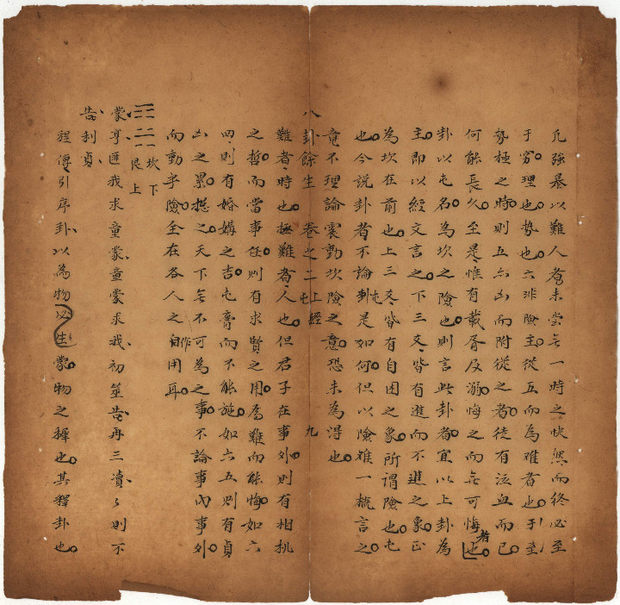 凡強暴以難人者未嘗無一時之快然而終必至
于窮理也勢也六非險主從五而為難者也于至
勢極之時則五六凶而附從之者徒有泣血而已
何能長久至是惟有載胥及溺悔之而無可悔者也
卦以屯名為坎之險也則言此卦者宜以上卦為
主即以經文言之下三爻皆有進而不進之象正
為坎在前也上三爻皆有自困之象所謂險也屯
也今說卦者不論屯卦是如何但以險難一概言之
竟不理論震動坎險之意恐未為得也
八卦餘生 卷之二 上經 屯 九
難者時也極難者人也但君子在事外則有相機
之哲而當事任則有求賢之用為難而能悔如六
四則有婚媾之吉屯膏而不能施如六五則有貞
凶之累總之天下無不可為之事不論事內事外
而動乎險全在各人之自作用耳
坎下
艮上
蒙亨匪我求童蒙童蒙求我初筮告再三瀆瀆則不
告利貞
程傳引序卦以為物必生蒙物之穉也其釋卦也